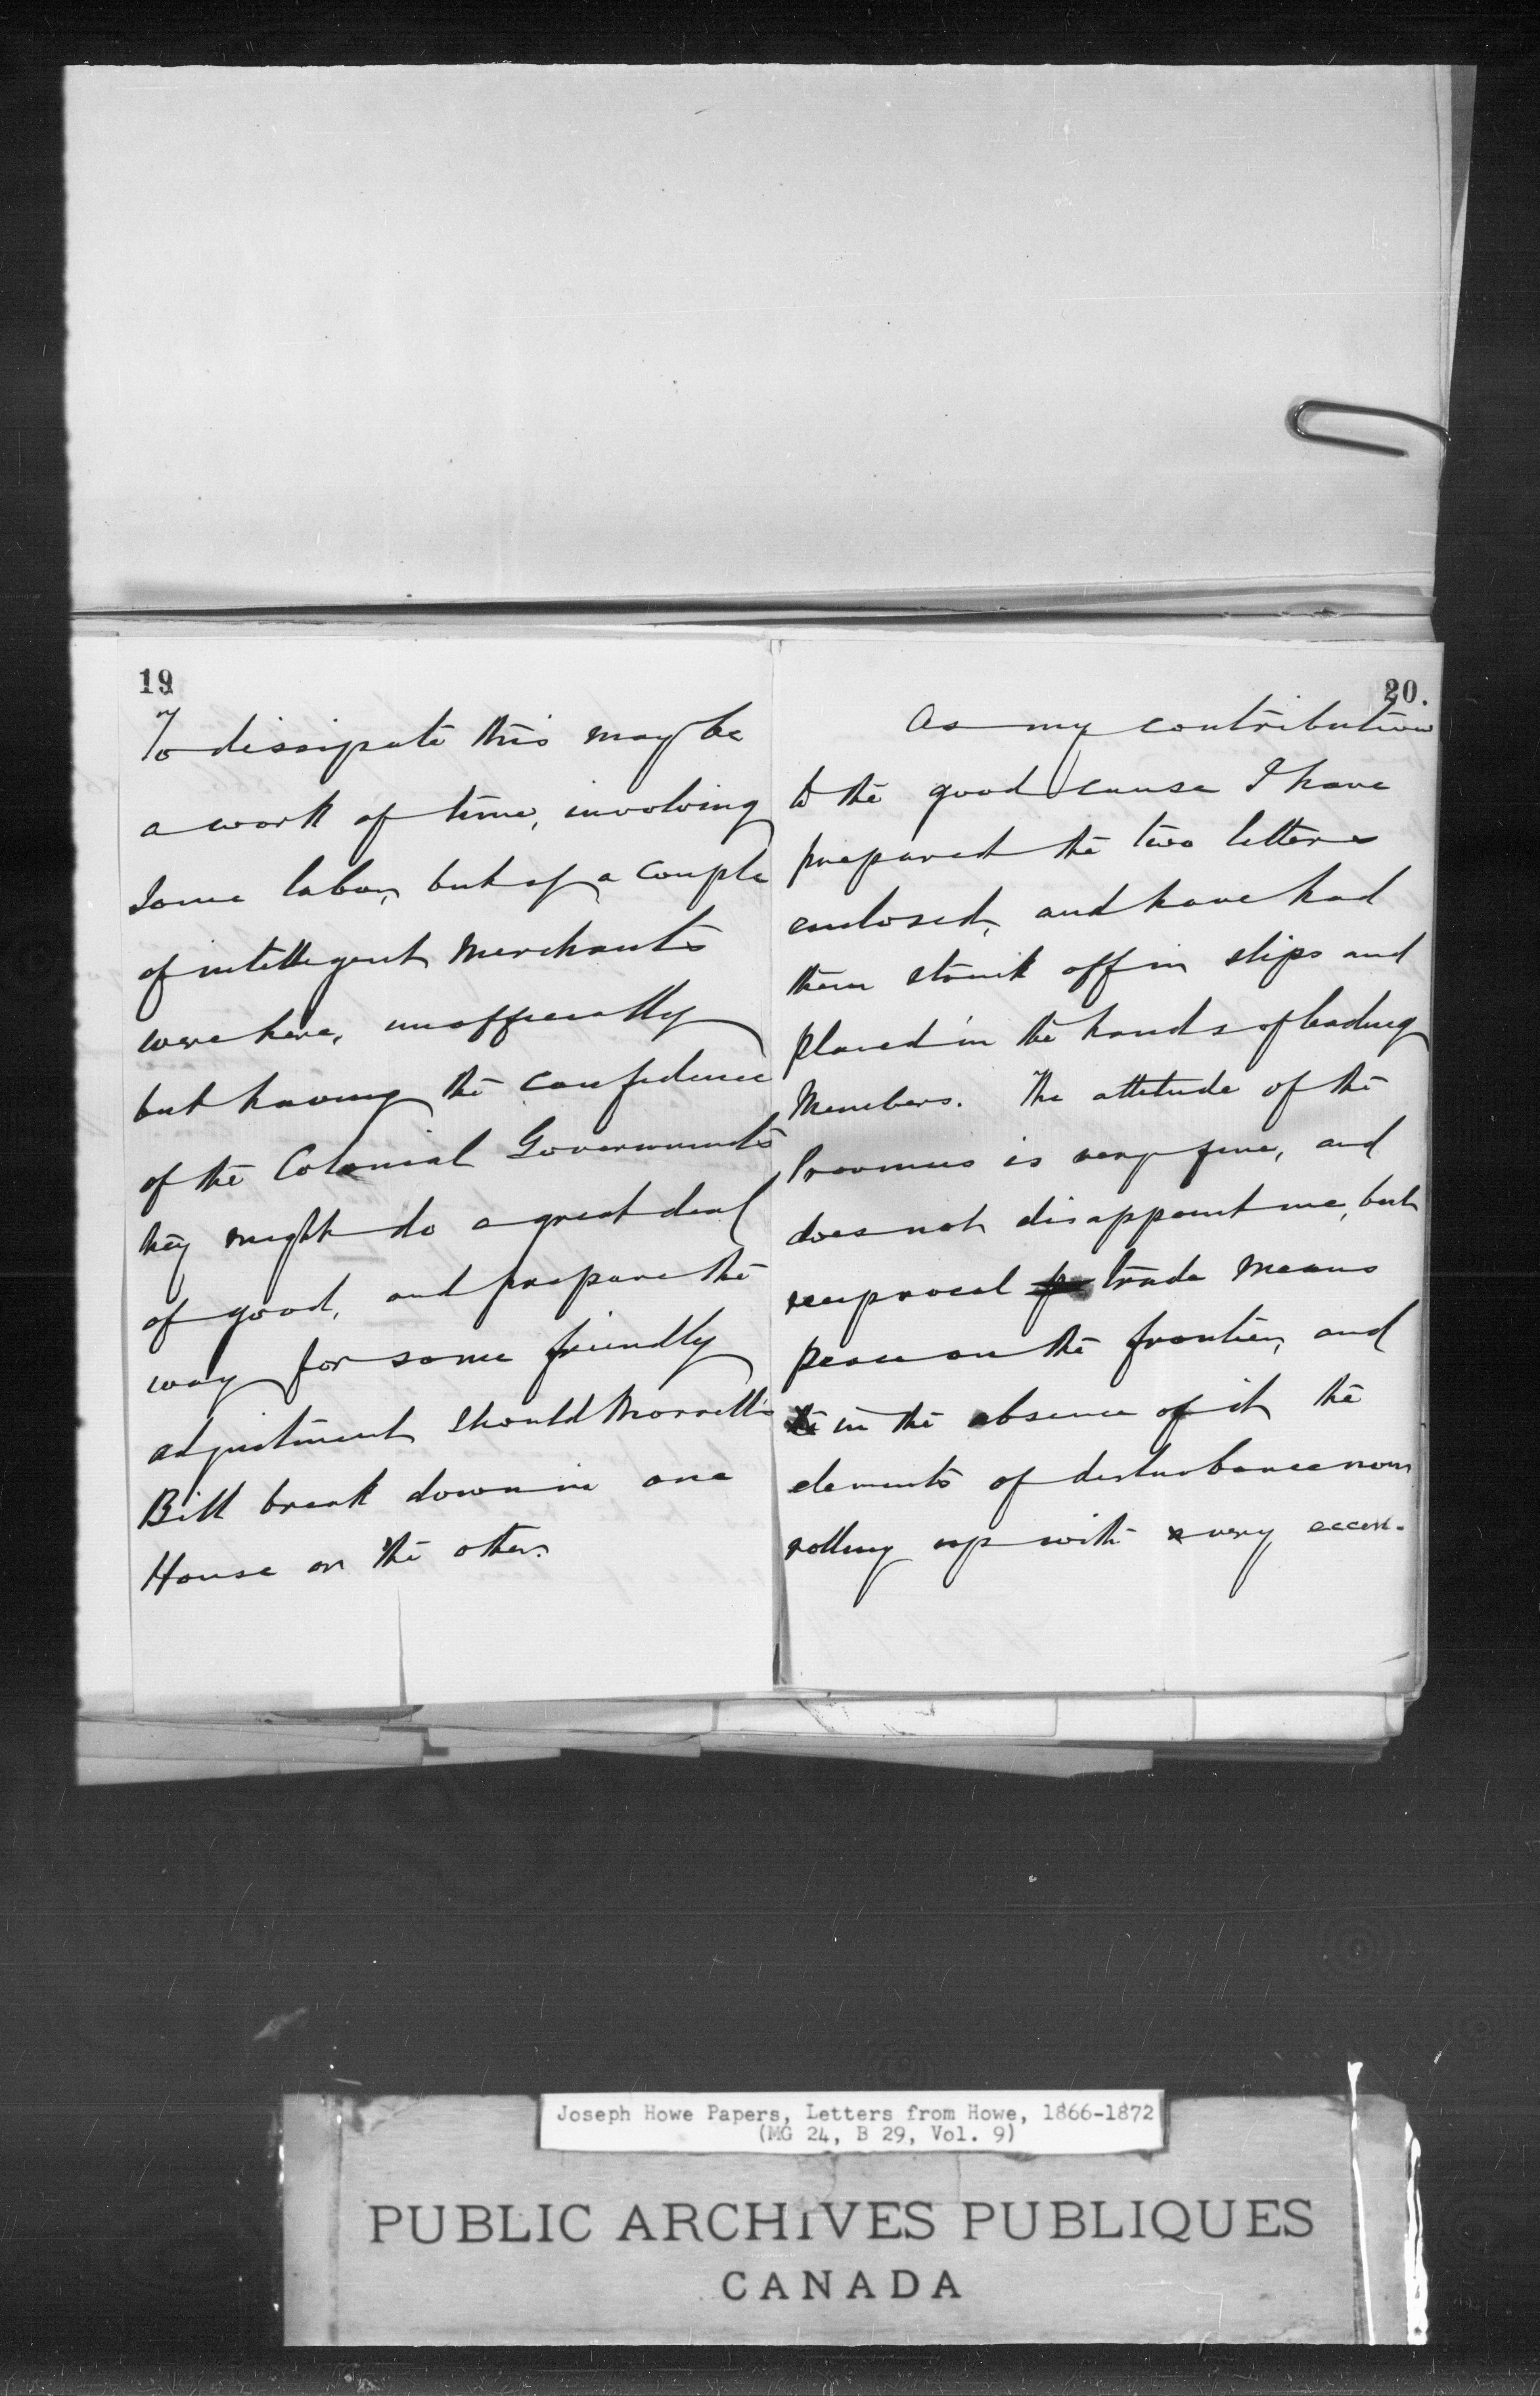 19
To dissipate this may be
a work of time, involving
some labor, but if a couple
of intelligent Merchants
were here, unofficially
but having the confidence
of the Colonial Governments
they might do a great deal
of good, and prepare the
way for some friendly
adjustment should Morrill's
Bill break down in one
House or the other.
20.
As my contribution
to the good cause I have
prepared the two letters
enclosed, and have had
them struck off in slips and
placed in the hands of leading
Members. The attitude of the
Provinces is very fine, and
does not disappoint me, but
reciprocal trade means
peace on the frontier, and
in the absence of it the
elements of disturbance now
rolling up with every
Joseph Howe Papers, Letters from Howe, 1866-1872
(MG 24, B 29, Vol. 9)
PUBLIC ARCHIVES PUBLIQUES
CANADA